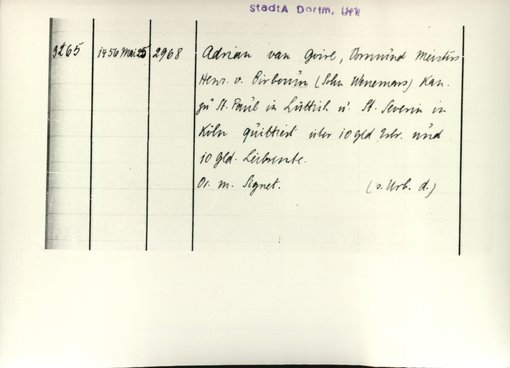 StadtA Dortm, Urk
3265 1456 Mai 25 2968 Adrian van Goirl, Vormund Meisters
Henr. v. Birboum (Sohn Wenemars) Kan.
zu St. Paul in Lüttich u. St. Severin in
Köln quittiert über 10 gld Erbr. und
10 gld. Leibrente.
Or. m. Signet. (v. Urb. d.)